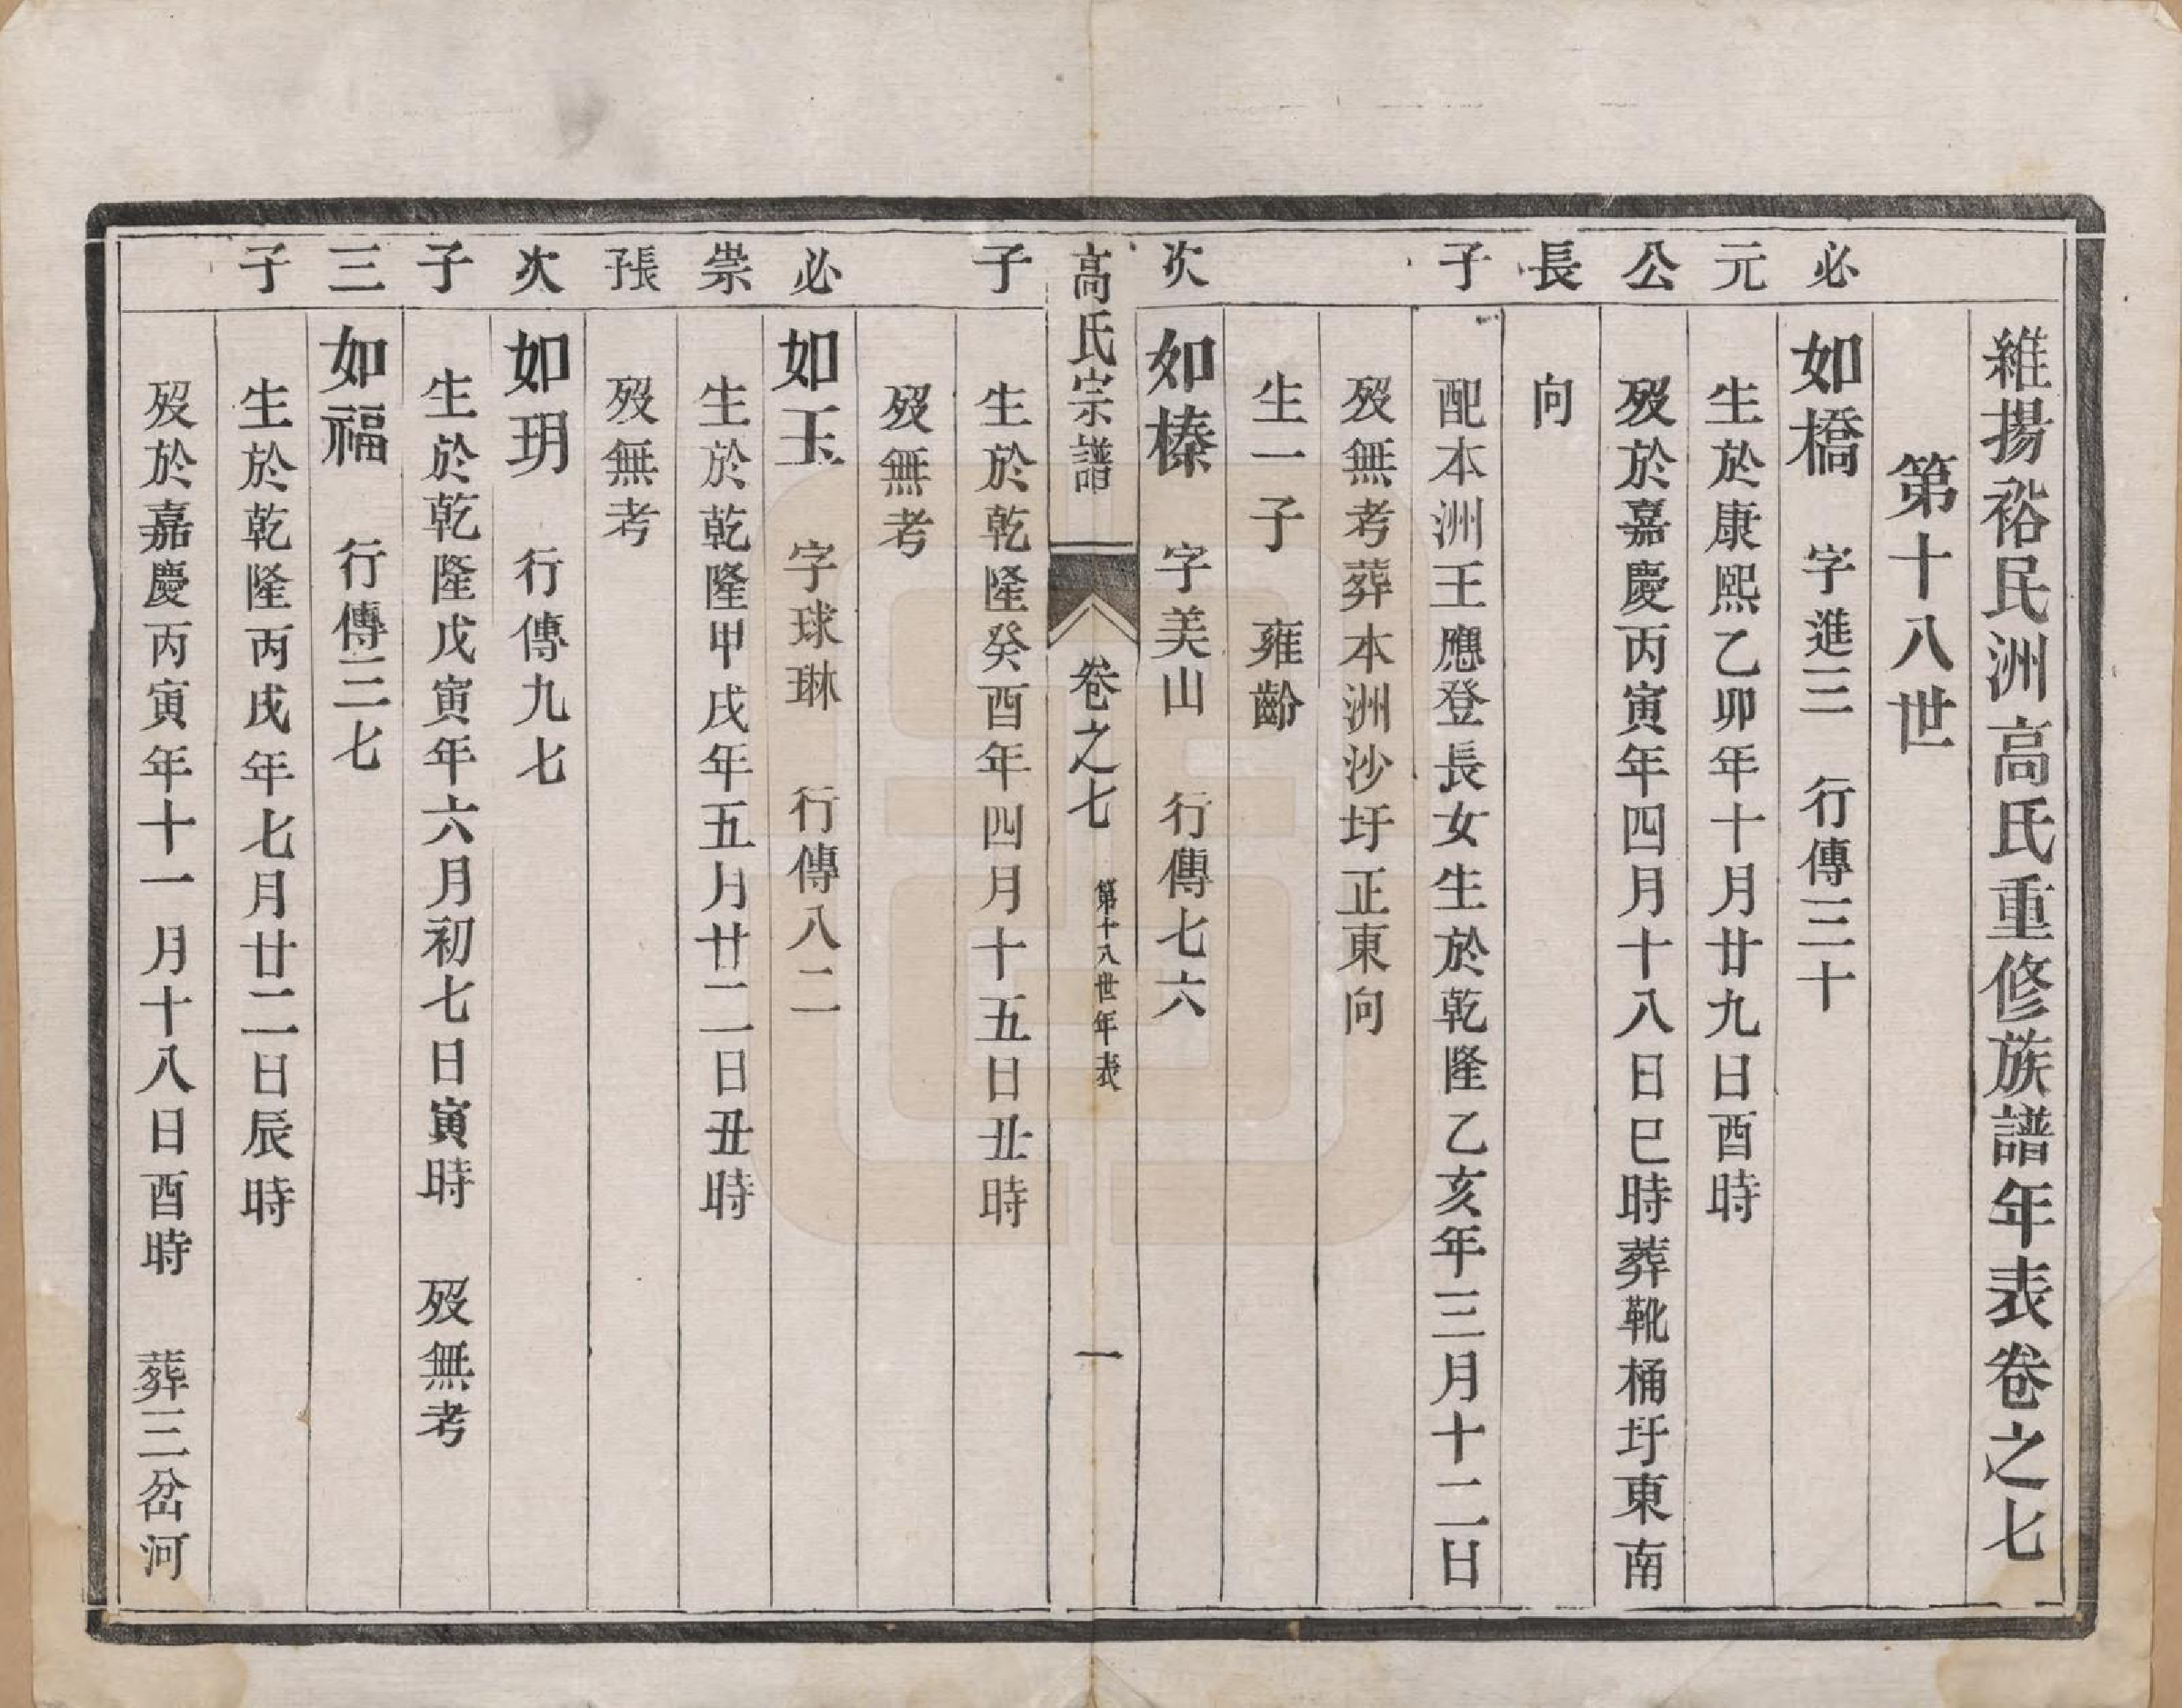 維揚裕民洲高氏重修族譜年表卷之七
第十八世
必 如橋 字進三 行傳三十
元 生於康熙乙卯年十月廿九日酉時
公 歿於嘉慶丙寅年四月十八日巳時葬靴桶圩東南
長 向
子 配本洲王應登長女生於乾隆乙亥年三月十二日
歿無考葬本洲沙圩正東向
生一子 雍齡
次 如榛 字美山 行傳七六
高氏宗譜 卷之七 第十八世年表 一
子 生於乾隆癸酉年四月十五日丑時
歿無考
必 如玉 字球琳 行傳八二
崇 生於乾隆甲戌年五月廿二日丑時
張子 歿無考
次 如玥 行傳九七
子 生於乾隆戊寅年六月初七日寅時 歿無考
三 如福 行傳三七
子 生於乾隆丙戌年七月廿二日辰時
歿於嘉慶丙寅年十一月十八日酉時 葬三岔河